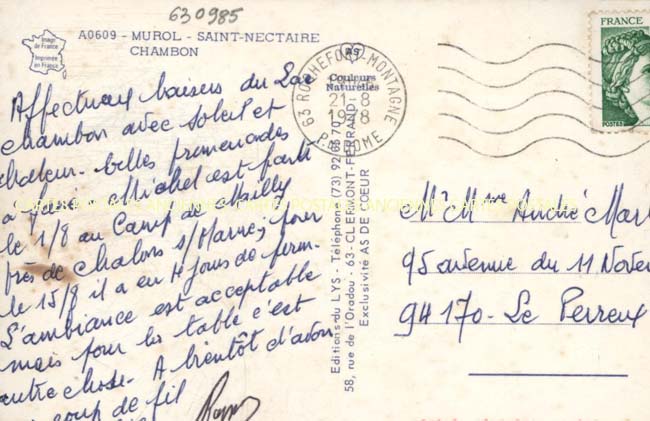 630985
Image de France
Imprimée en France
A0609 - MUROL - SAINT-NECTAIRE
CHAMBON
Affectueux baisers du Lac
chambon avec soleil et
chaleur. belles promenades
a faire. Michel est parti
le 1/8 au Camp de Mailly
près de chalons s/Marne, pour
le 15/8 il a eu 4 jours de perm.
L'ambiance est acceptable
mais pour la table c'est
autre chose. A bientôt d'avoir
coup de fil
Editions du LYS - Téléphone (73) 92 65 70
58, rue de l'Oradou - 63-CLERMONT-FERRAND
Exclusivité AS DE CŒUR
Couleurs
Naturelles
63 ROCHEFORT-MONTAGNE
21-8
P.-DE-DOME
FRANCE
POSTES
Mr Mme André Mar
95 avenue du 11 Nove
94170 - Le Perreux